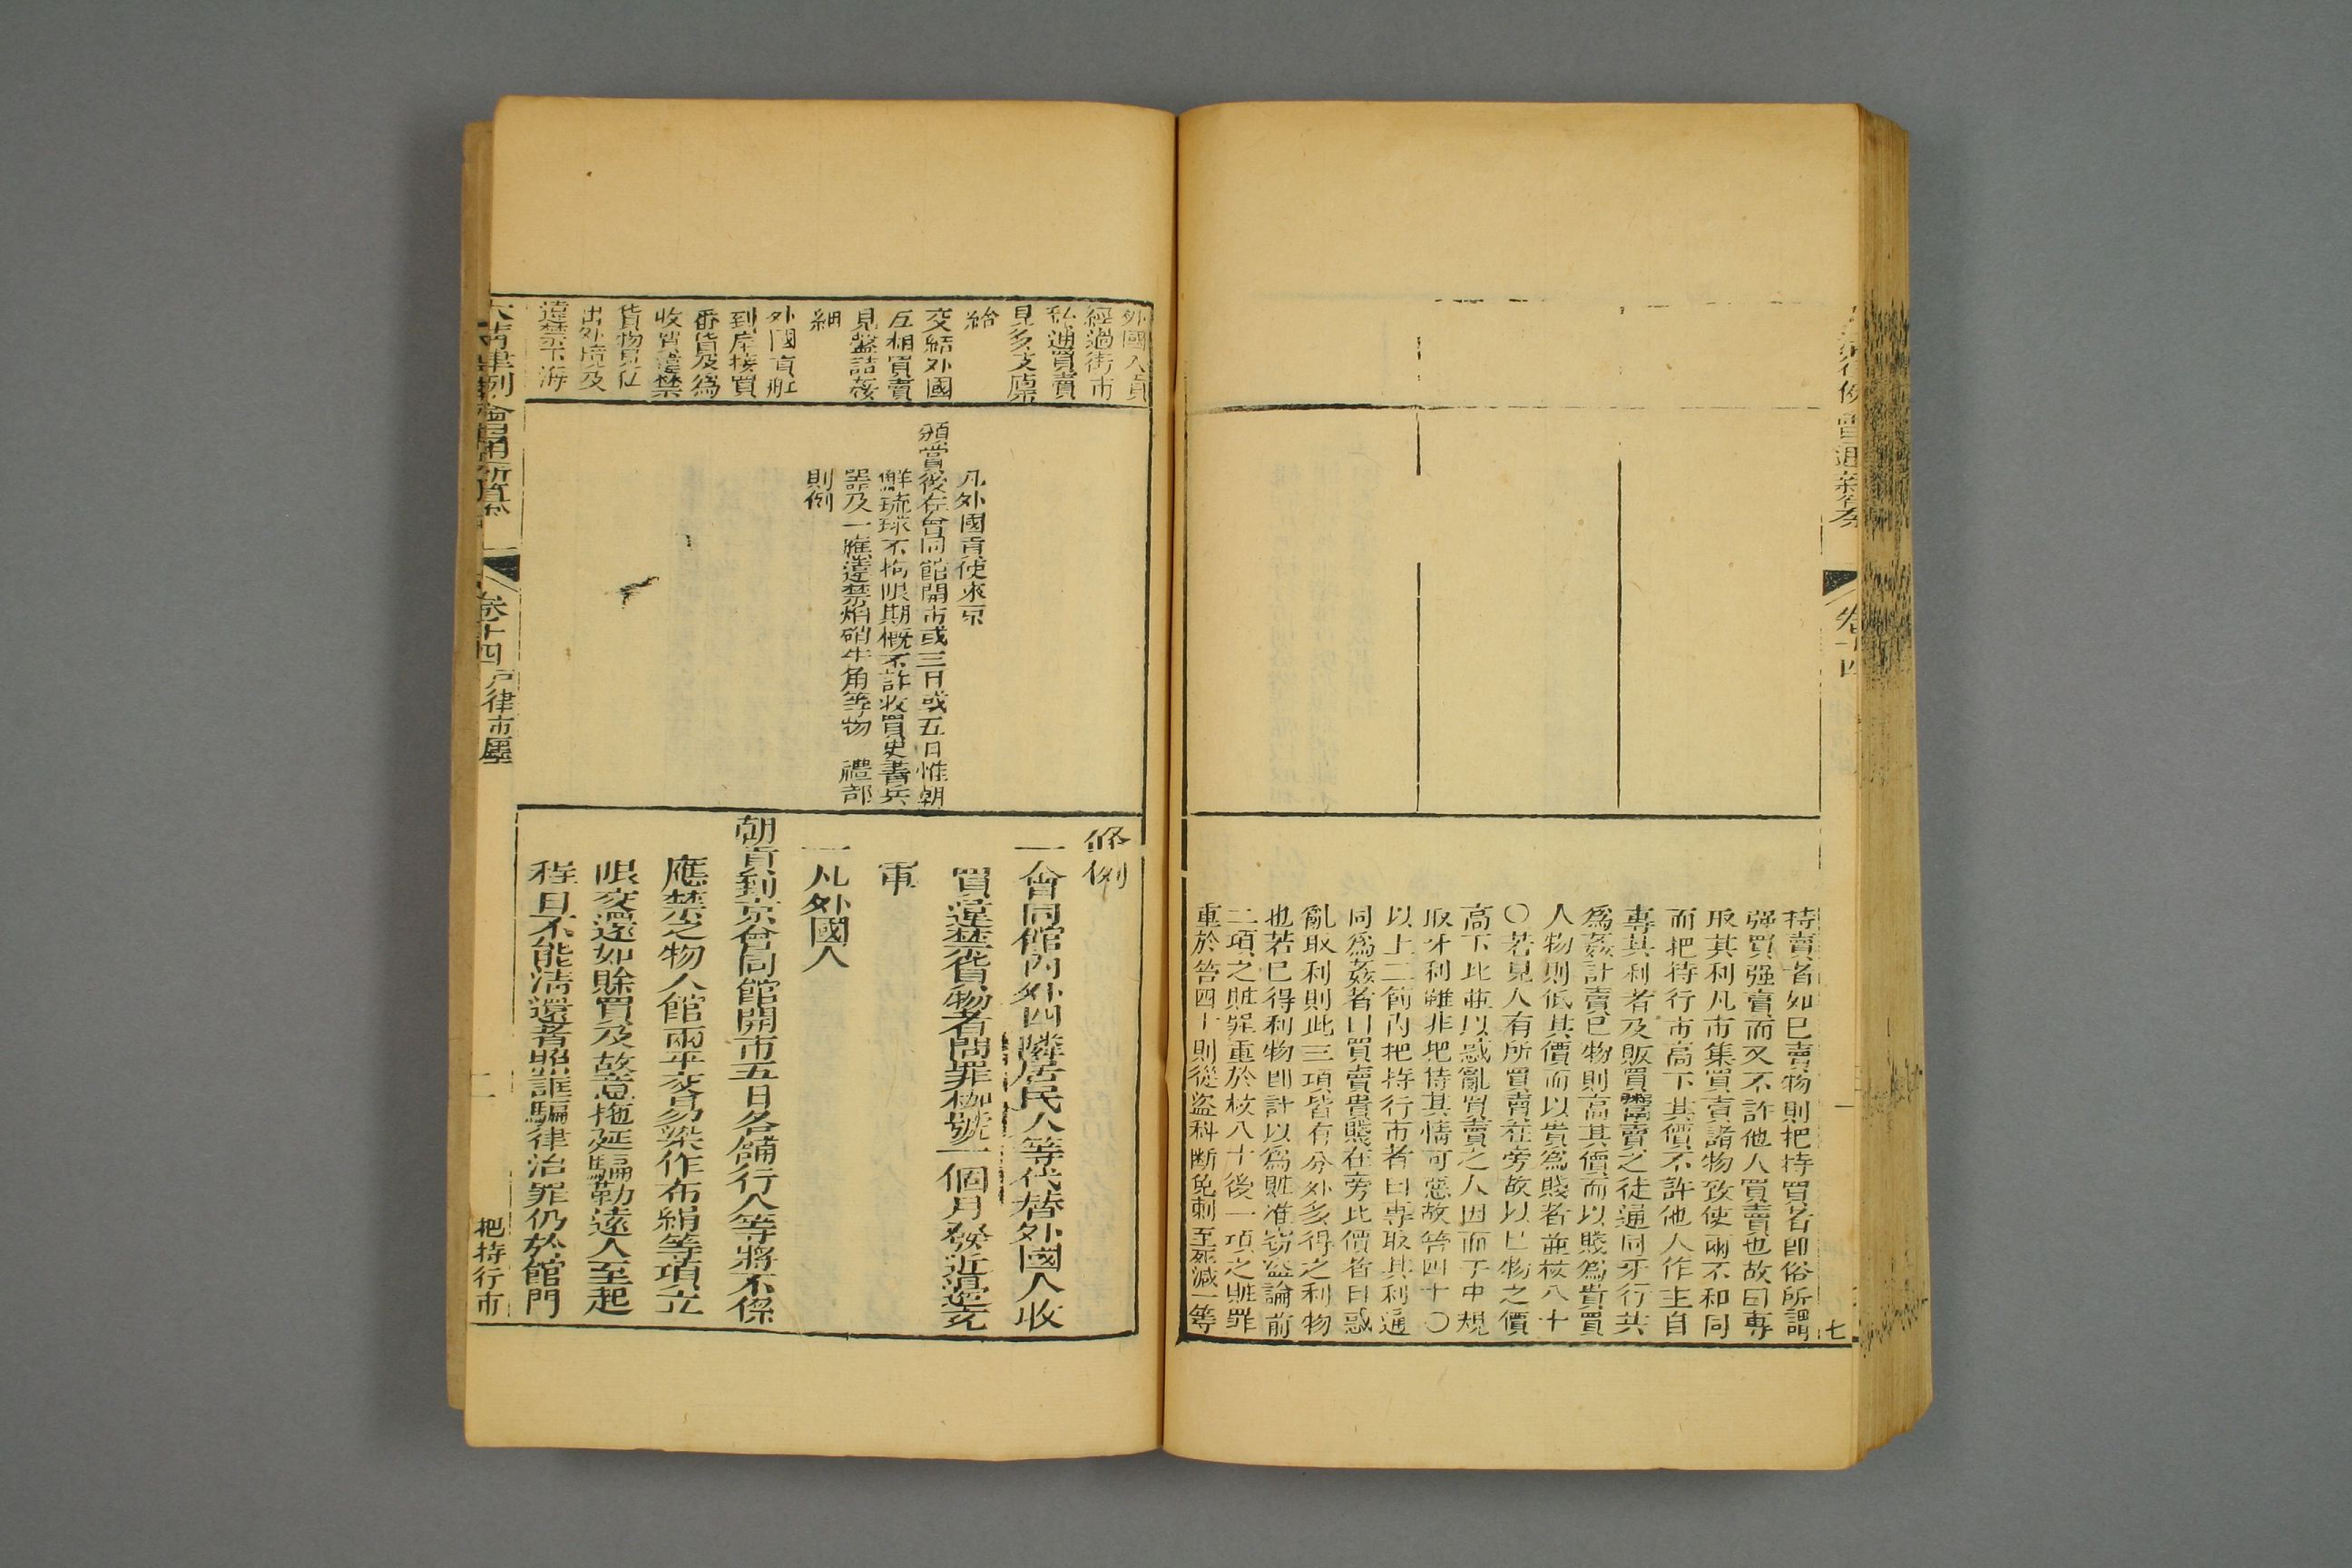 卷十四
七
持賣者如巳賣物則把持買者卽俗所謂
强買强賣而又不許他人買賣也故曰專
取其利凡市集買賣諸物致使兩不和同
而把持行市高下其價不許他人作主自
專其利者及販買賣之徒通同牙行共
爲姦計賣巳物則高其價而以賤爲貴買
人物則低其價而以貴爲賤者並杖八十
〇若見人有所買賣在旁故以巳物之價
高下比並以惑亂買賣之人因而于中規
取牙利雖非把持其情可惡故笞四十〇
以上二節內把持行市者曰專取其利通
同爲姦者曰買賣貴賤在旁比價者曰惑
亂取利則此三項皆有分外多得之利物
也若巳得利物卽計以爲贓准竊盜論前
二項之贓罪重於杖八十後一項之贓罪
重於笞四十則從盜科斷免刺至死減一等
外國人貢
經過街市
私通買賣
見多支廩
給
交結外國
互相買賣
見盤詰姦
細
外國貢船
到岸接買
番貨及爲
收買違禁
貨物見私
出外境及
違禁下海
凡外國貢使來京
頒賞後在會同館開市或三日或五日惟朝
鮮琉球不拘限期槪不許收買史書兵
器及一應違禁焰硝牛角等物 禮部
則例
條例
一會同館內外四隣居民人等代替外國人收
買違禁貨物者問罪枷號一個月發近邊充
軍
一凡外國人
朝貢到京會同館開市五日各舖行人等將不係
應禁之物入館兩平交易染作布絹等項立
限交還如賒買及故意拖延騙勒遠人至起
程日不能淸還者照誆騙律治罪仍於館門
大清律例會通新纂
卷十四
戸律市廛
二
把持行市